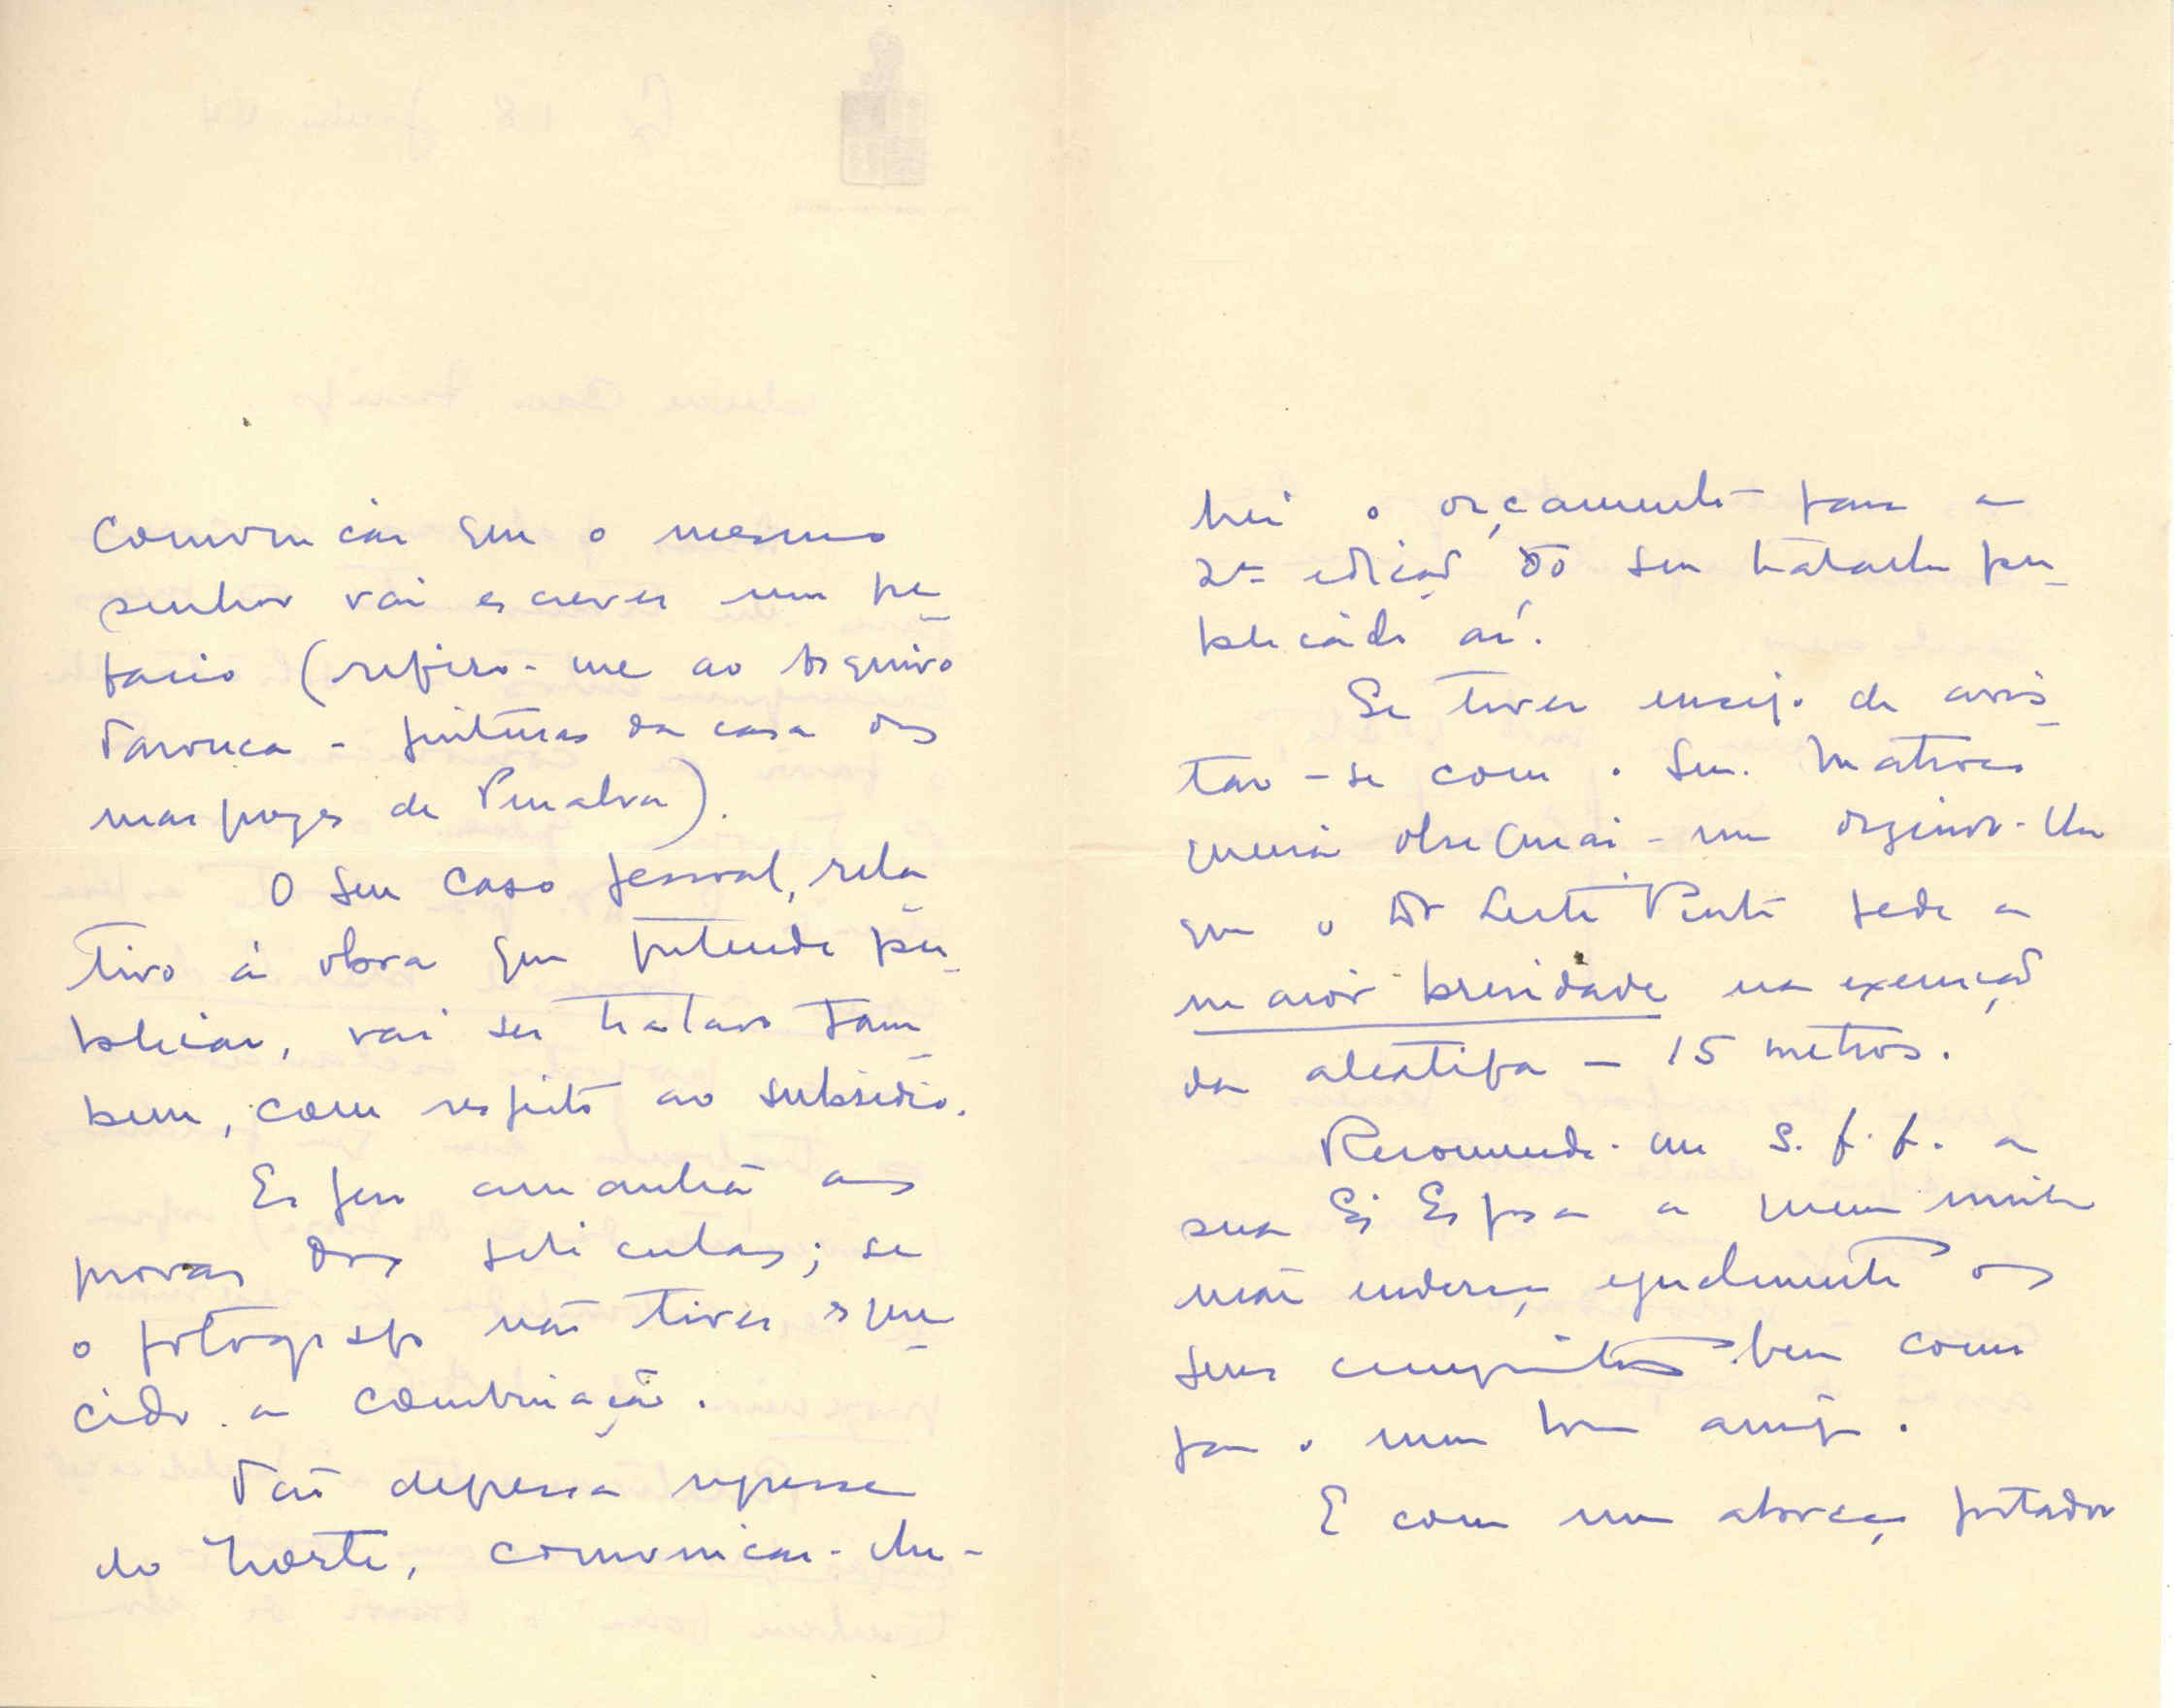 Comunicar que o mesmo
senhor vai escrever um pre-
facio (refiro-me ao Arquivo
Tarouca - pinturas da casa dos
marquezes de Penalva).
O seu caso pessoal, rela-
tivo á obra que pretende pu-
blicar, vai ser tratado tam-
bem, com respeito ao subsidio.
Espero amanhã as
provas das peliculas; se
o fotografo não tiver esque-
cido a combinação.
Tão depressa regresse
do Norte, comunicar-lhe-
hei o orçamento para a
2ª edição do seu trabalho pu-
blicado aí.
Se tiver ensejo de avis-
tar-se com o Snr. Matroco
queira obsequiar-me dizendo-lhe
que o Dr Leite Pinto pede a
maior brevidade na execução
da alcatifa - 15 metros.
Recomende-me s. f. f. a
sua Ex Esposa a quem minha
mãe endereça egualmente os
seus cumprimentos bem como
para o meu bom amigo.
E com um abraço